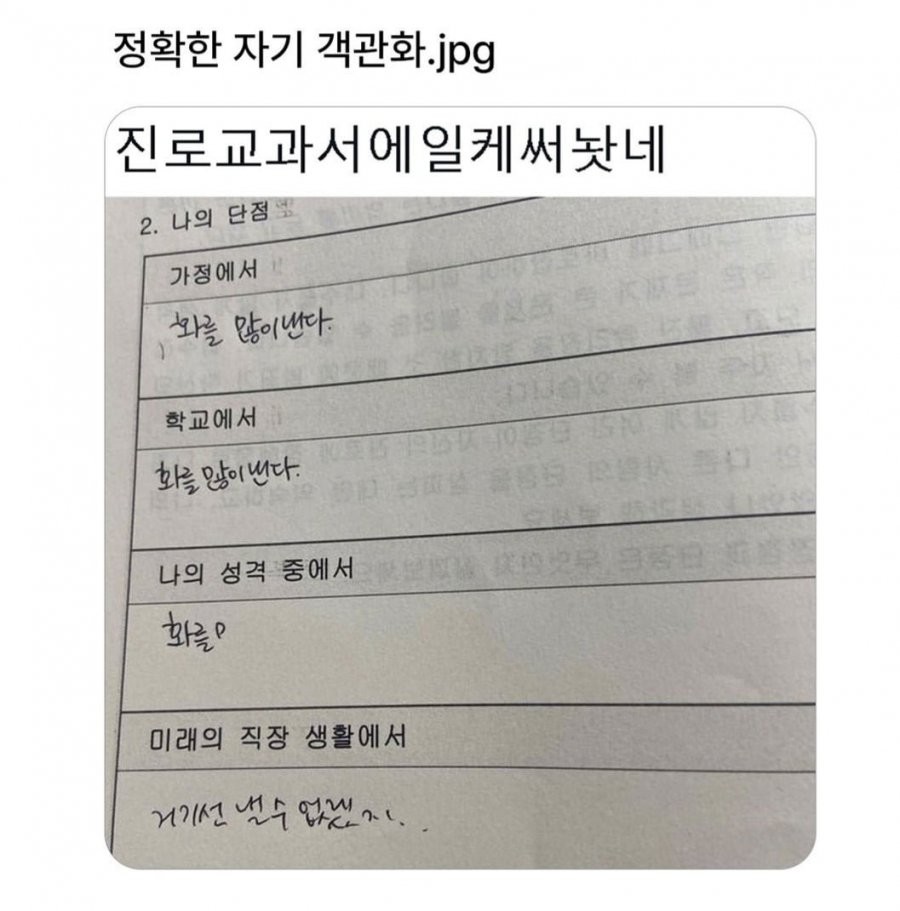 정확한 자기 객관화.jpg
진로교과서에일케써놧네
2. 나의 단점
가정에서
화를 많이낸다.
학교에서
화를많이낸다.
나의 성격 중에서
화를ㅁ
미래의 직장 생활에서
거기선 낼수 없겠지..